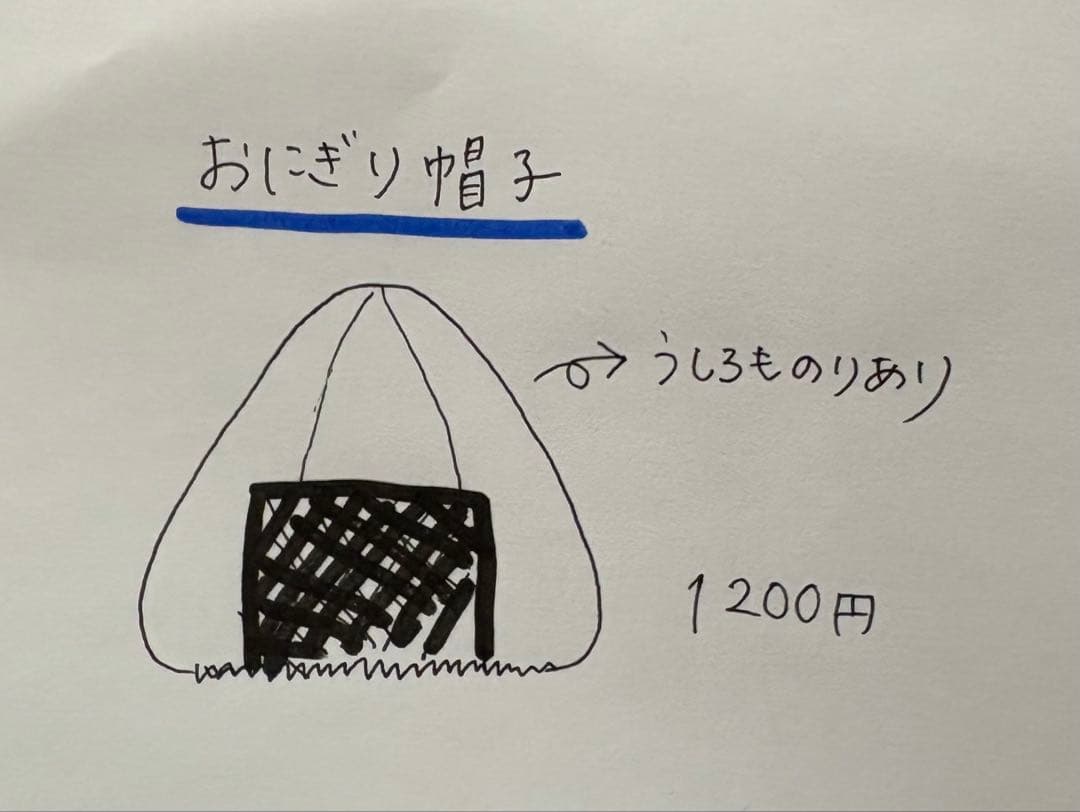 おにぎり帽子
うしろものりあり
1200円